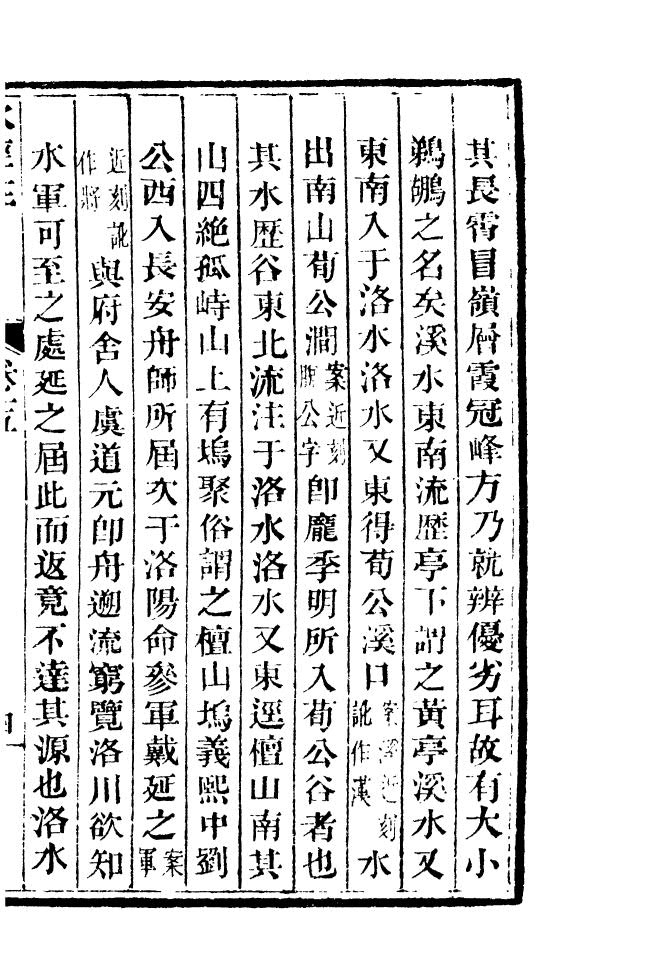 其長霄冒嶺層霞冠峰方乃就辨優劣耳故有大小
鵜鶘之名矣溪水東南流歷亭下謂之黃亭溪水又
東南入于洛水洛水又東得荀公溪口案溪近刻訛作漢水
出南山荀公澗案近刻脫公字卽龐季明所入荀公谷者也
其水歷谷東北流注于洛水洛水又東逕檀山南其
山四絶孤峙山上有塢聚俗謂之檀山塢義熙中劉
公西入長安舟師所屆次于洛陽命參軍戴延之案軍
近刻訛作將與府舍人虞道元卽舟遡流窮覽洛川欲知
水軍可至之處延之屆此而返竟不達其源也洛水